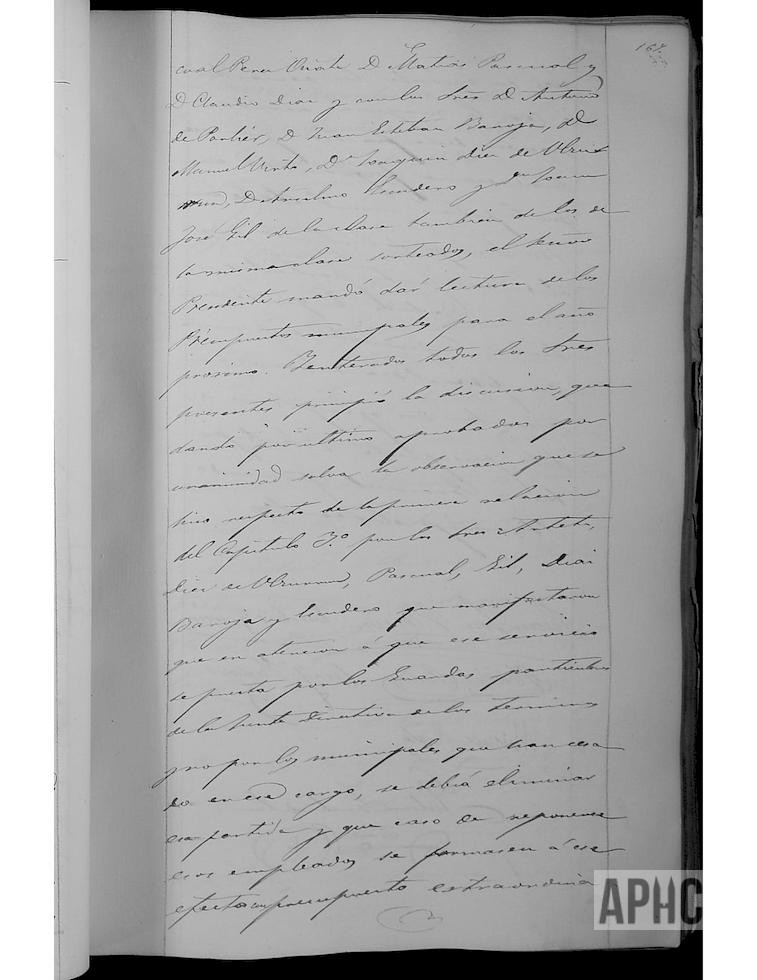 167
cual Perez Oñate D Matias Pascual y
D Claudio Diaz y con los Sres D Antonio
de Parlier, D Juan Esteban Baroja, D
Manuel Vinto, Dn Joaquin Diez de Ulzur
run, D Anselmo Escudero y Dn Juan
José Gil de la clase tambien de los de
la misma clase sorteados, el Señor
Presidente mandó dar lectura de los
Presupuestos municipales para el año
procsimo. Enterados todos los Sres
presentes principió la discusion, que
dando por ultimo aprobados por
unanimidad salva la observacion que se
hizo respecto de la primera relacion
del Capitulo 3.º por los Sres Arteta,
Diez de Ulzurrun, Pascual, Gil, Diaz
Baroja y Escudero que manifestaron
que en atencion á que ese servicio
se presta por los Guardas particulares
de la Junta Directiva de los terminos
y no por los municipales que han cesa
do en ese cargo, se debiá eliminar
esa partida y que caso de reponerse
esos empleados se formasen á ese
efecto un presupuesto extraordina
APHC